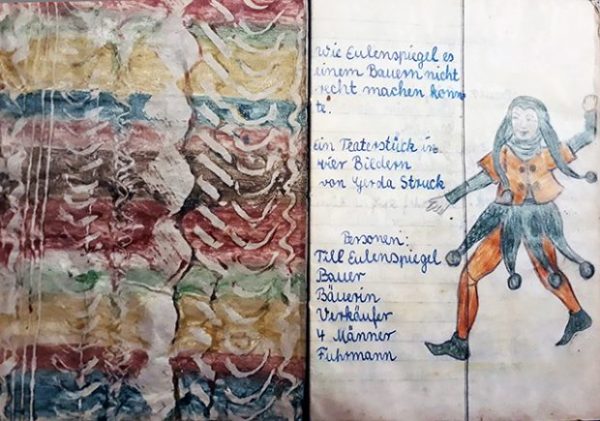 Wie Eulenspiegel es
einem Bauern nicht
recht machen konn
te.
ein Teaterstück in
vier Bildern
von Gerda Struck
Personen:
Till Eulenspiegel
Bauer
Bäuerin
Verkäufer
4 Männer
Fuhrmann